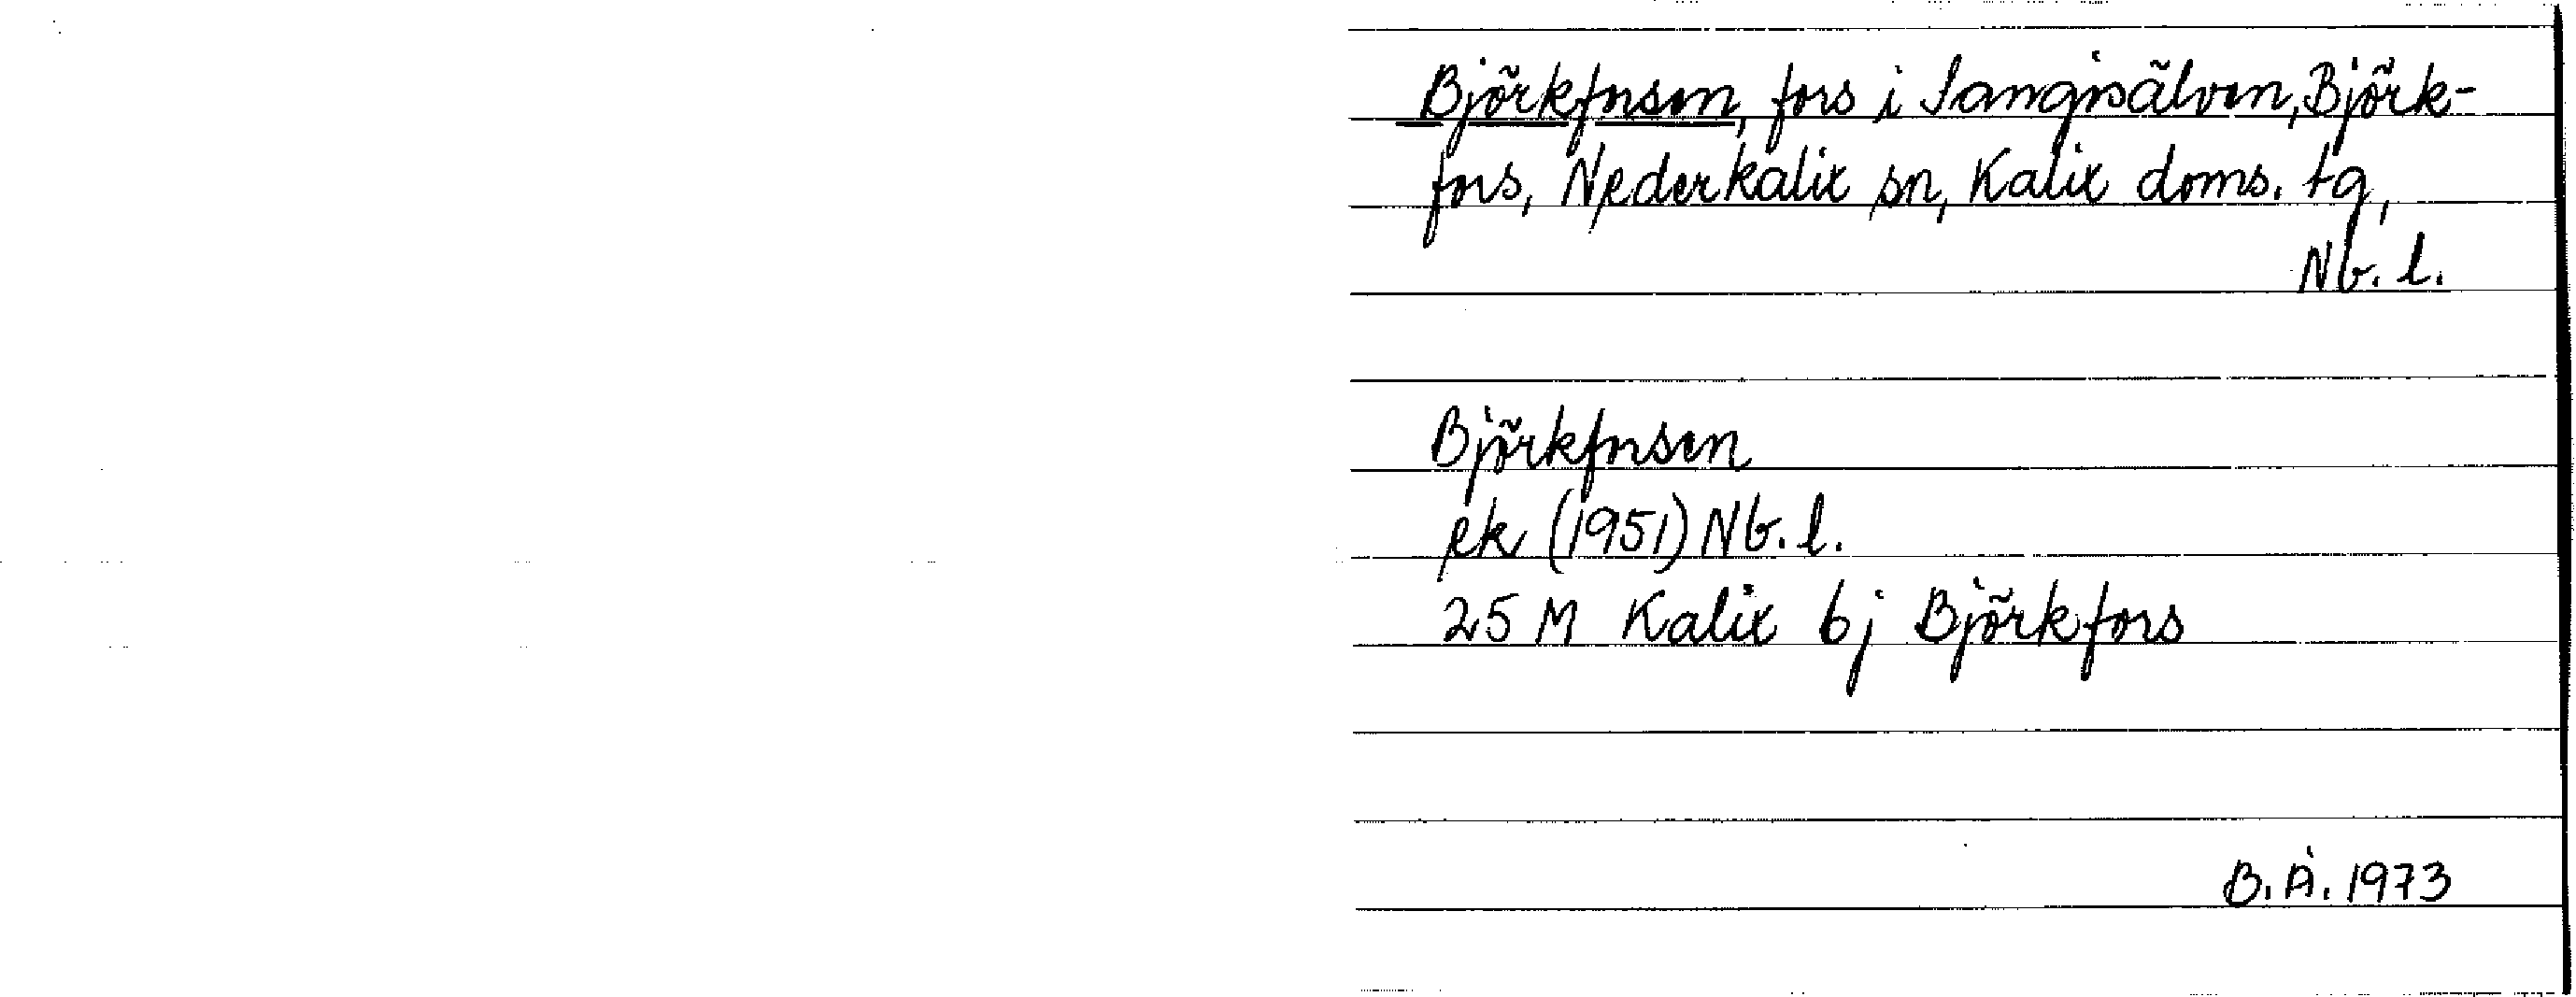 Björkforsen, fors i Sangisälven, Björk-
fors, Nederkalix sn, Kalix doms. tg,
Nb. l.
Björkforsen
ek (1951) Nb. l.
25 M Kalix bj Björkfors
B. Å. 1973